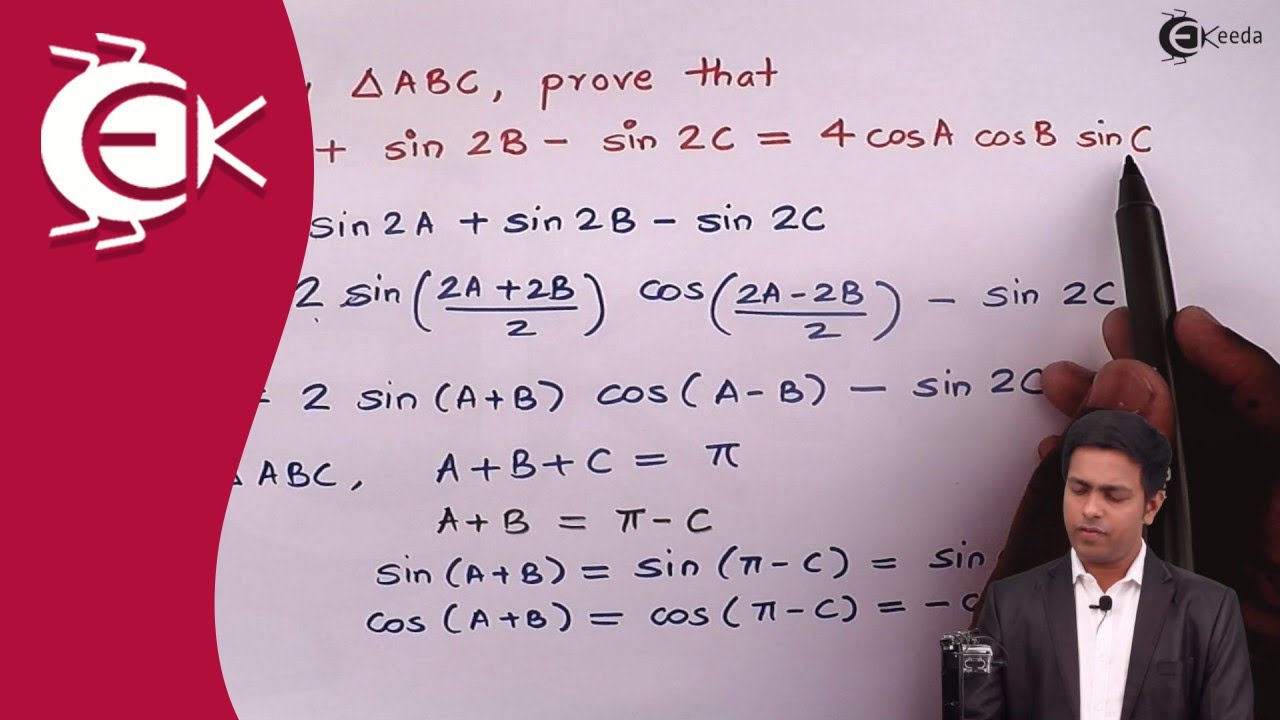 EK
Ekeeda
, △ABC, prove that
+ sin 2B − sin 2C = 4 cosA cosB sinC
sin 2A + sin 2B − sin 2C
2 sin(2A+2B/2) cos(2A−2B/2) − sin 2C
= 2 sin(A+B) cos(A−B) − sin 2C
△ABC, A+B+C = π
A+B = π−C
sin(A+B) = sin(π−C) = sin
cos(A+B) = cos(π−C) = −c